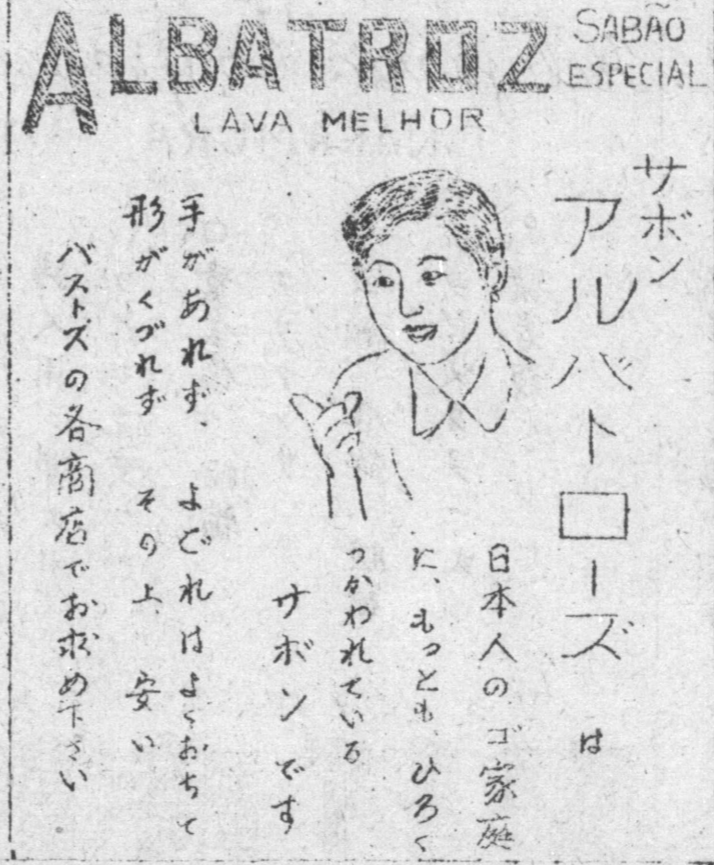 ALBATROZ
SABÃO
ESPECIAL
LAVA MELHOR
サボン
アルバトローズ は
日本人のゴ家庭
に、もっとも、ひろく
つかわれている
サボンです
手があれず、よごれはよくおちて
形がくづれず その上、安い
バストスの各商店でお求め下さい